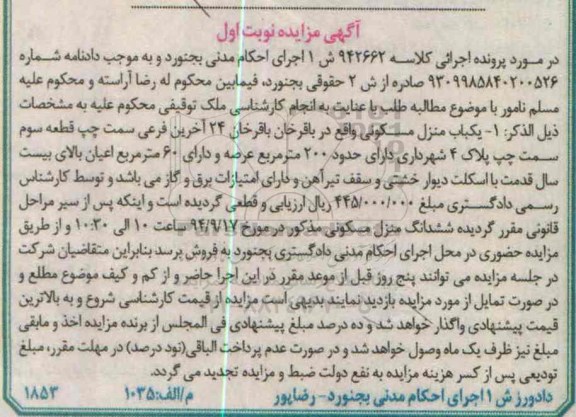 آگهی مزایده نوبت اول
در مورد پرونده اجرائی کلاسه ۹۴۲۶۶۲ ش ۱ اجرای احکام مدنی بجنورد و به موجب دادنامه شماره
۹۳۰۹۹۸۵۸۴۰۲۰۰۵۲۶ صادره از ش ۲ حقوقی بجنورد، فیمابین محکوم له رضا آراسته و محکوم علیه
مسلم نامور با موضوع مطالبه طلب با عنایت به انجام کارشناسی ملک توقیفی محکوم علیه به مشخصات
ذیل الذکر: ۱- یکباب منزل مسکونی واقع در باقرخان باقرخان ۲۴ آخرین فرعی سمت چپ قطعه سوم
سمت چپ پلاک ۴ شهرداری دارای حدود ۲۰۰ مترمربع عرصه و دارای ۶۰ مترمربع اعیان بالای بیست
سال قدمت با اسکلت دیوار خشتی و سقف تیرآهن و دارای امتیازات برق و گاز می باشد و توسط کارشناس
رسمی دادگستری مبلغ ۴۴۵/۰۰۰/۰۰۰ ریال ارزیابی و قطعی گردیده است و اینکه پس از سیر مراحل
قانونی مقرر گردیده ششدانگ منزل مسکونی مذکور در مورخ ۹۴/۹/۱۷ ساعت ۱۰ الی ۱۰:۳۰ و از طریق
مزایده حضوری در محل اجرای احکام مدنی دادگستری بجنورد به فروش برسد بنابراین متقاضیان شرکت
در جلسه مزایده می توانند پنج روز قبل از موعد مقرر در این اجرا حاضر و از کم و کیف موضوع مطلع و
در صورت تمایل از مورد مزایده بازدید نمایند بدیهی است مزایده از قیمت کارشناسی شروع و به بالاترین
قیمت پیشنهادی واگذار خواهد شد و ده درصد مبلغ پیشنهادی فی المجلس از برنده مزایده اخذ و مابقی
مبلغ نیز ظرف یک ماه وصول خواهد شد و در صورت عدم پرداخت الباقی(نود درصد) در مهلت مقرر، مبلغ
تودیعی پس از کسر هزینه مزایده به نفع دولت ضبط و مزایده تجدید می گردد.
دادورز ش ۱ اجرای احکام مدنی بجنورد- رضاپور م/الف:۱۰۳۵ ۱۸۵۳